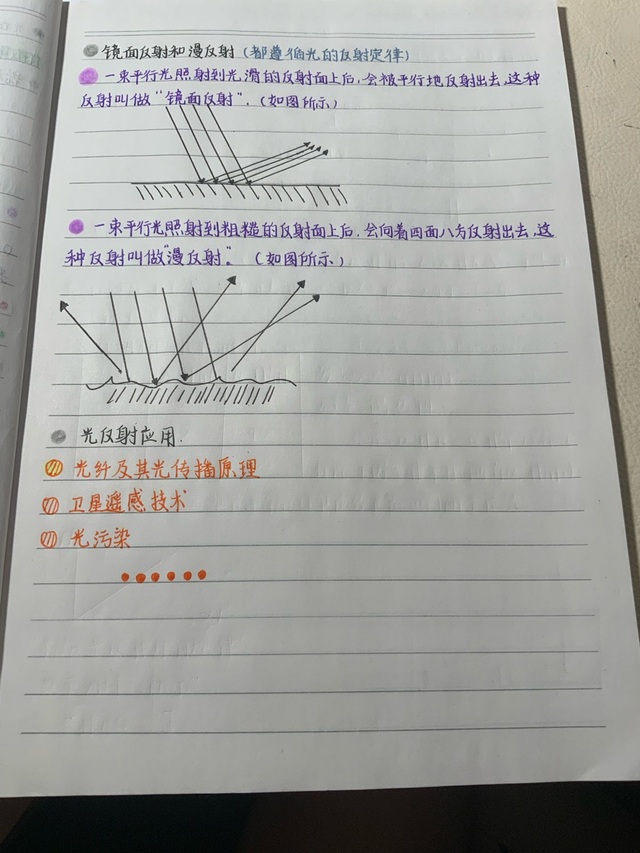 镜面反射和漫反射(都遵循光的反射定律)
一束平行光照射到光滑的反射面上后,会被平行地反射出去,这种
反射叫做“镜面反射”.(如图所示)
一束平行光照射到粗糙的反射面上后,会向着四面八方反射出去,这
种反射叫做“漫反射”.(如图所示)
光反射应用.
光纤及其光传播原理
卫星遥感技术
光污染